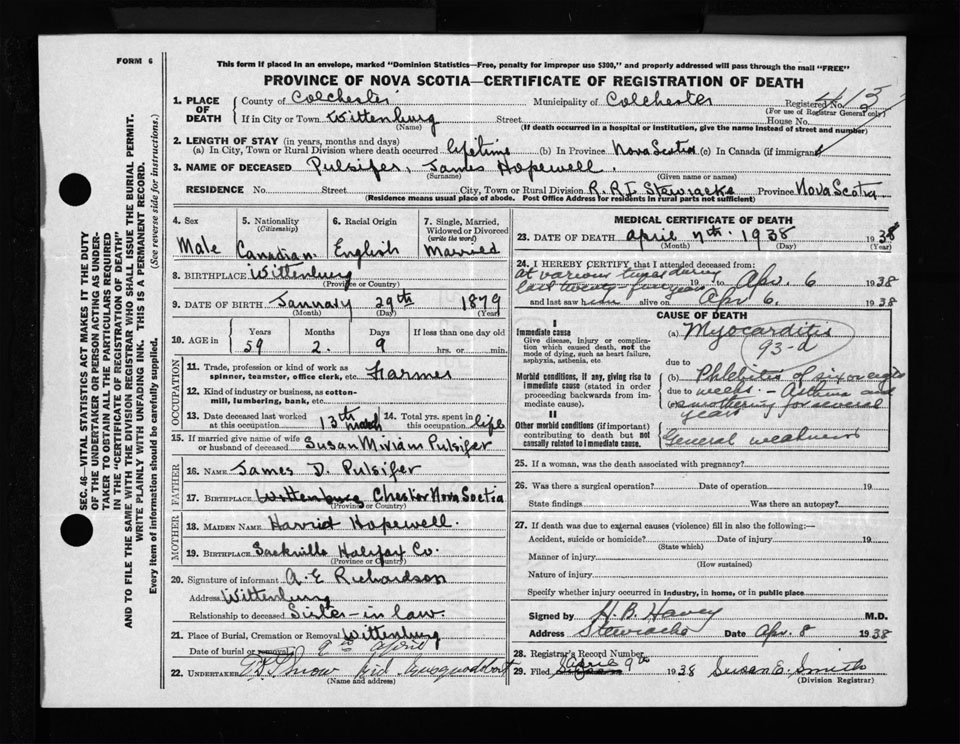 FORM 6
This form if placed in an envelope, marked "Dominion Statistics—Free, penalty for improper use $300," and properly addressed will pass through the mail "FREE"
PROVINCE OF NOVA SCOTIA—CERTIFICATE OF REGISTRATION OF DEATH
SEC. 46—VITAL STATISTICS ACT MAKES IT THE DUTY
OF THE UNDERTAKER OR PERSON ACTING AS UNDER-
TAKER TO OBTAIN ALL THE PARTICULARS REQUIRED
IN THE "CERTIFICATE OF REGISTRATION OF DEATH"
AND TO FILE THE SAME WITH THE DIVISION REGISTRAR WHO SHALL ISSUE THE BURIAL PERMIT.
WRITE PLAINLY WITH UNFADING INK. THIS IS A PERMANENT RECORD.
Every item of information should be carefully supplied. (See reverse side for instructions.)
1. PLACE OF DEATH
County of Colchester Municipality of Colchester Registered No.
(For use of Registrar General only)
If in City or Town Wittenburg Street House No.
(Name) (If death occurred in a hospital or institution, give the name instead of street and number)
2. LENGTH OF STAY (in years, months and days)
(a) In City, Town or Rural Division where death occurred lifetime (b) In Province Nova Scotia (c) In Canada (if immigrant)
3. NAME OF DECEASED Pulsifer, James Hopewell.
(Surname) (Given name or names)
RESIDENCE No. Street City, Town or Rural Division R.R.1 Stewiacke Province Nova Scotia
(Residence means usual place of abode. Post Office Address for residents in rural parts not sufficient)
4. Sex
Male
5. Nationality
(Citizenship)
Canadian
6. Racial Origin
English
7. Single, Married,
Widowed or Divorced
(write the word)
Married
8. BIRTHPLACE Wittenburg
(Province or Country)
9. DATE OF BIRTH January 29th 1879
(Month) (Day) (Year)
10. AGE in
Years Months Days If less than one day old
59 2. 9 hrs. or min.
OCCUPATION
11. Trade, profession or kind of work as
spinner, teamster, office clerk, etc. Farmer
12. Kind of industry or business, as cotton-
mill, lumbering, bank, etc.
13. Date deceased last worked
at this occupation 13th March
14. Total yrs. spent in
this occupation life
15. If married give name of wife
or husband of deceased Susan Miriam Pulsifer
FATHER
16. NAME James D. Pulsifer
17. BIRTHPLACE Wittenburg Chester Nova Scotia
(Province or Country)
MOTHER
18. MAIDEN NAME Harriet Hopewell.
19. BIRTHPLACE Sackville Halifax Co.
(Province or Country)
20. Signature of informant A. E Richardson
Address Wittenburg
Relationship to deceased Sister-in law.
21. Place of Burial, Cremation or Removal Wittenburg
Date of burial or removal 9th April
22. UNDERTAKER
(Name and address)
MEDICAL CERTIFICATE OF DEATH
23. DATE OF DEATH April 7th. 1938 1938
(Month) (Day) (Year)
24. I HEREBY CERTIFY that I attended deceased from:
at various times during
last twenty-five years 19 to Apr. 6 1938
and last saw him alive on Apr 6. 1938
CAUSE OF DEATH
I
Immediate cause
Give disease, injury or complica-
tion which caused death, not the
mode of dying, such as heart failure,
asphyxia, asthenia, etc
(a) Myocarditis
93-a
due to
Morbid conditions, if any, giving rise to
immediate cause (stated in order
proceeding backwards from im-
mediate cause).
(b) Phlebitis of six or eight
due to weeks :- Asthma and
(c) smothering for several
years
II
Other morbid conditions (if important)
contributing to death but not
causally related to immediate cause.
General weakness
25. If a woman, was the death associated with pregnancy?
26. Was there a surgical operation? Date of operation 19
State findings Was there an autopsy?
27. If death was due to external causes (violence) fill in also the following:—
Accident, suicide or homicide? Date of injury 19
(State which)
Manner of injury
(How sustained)
Nature of injury
Specify whether injury occurred in industry, in home, or in public place
Signed by H. B. Havey M.D.
Address Stewiacke Date Apr. 8 1938
28. Registrar's Record Number
29. Filed April 9th 1938 Susan E. Smith
(Division Registrar)